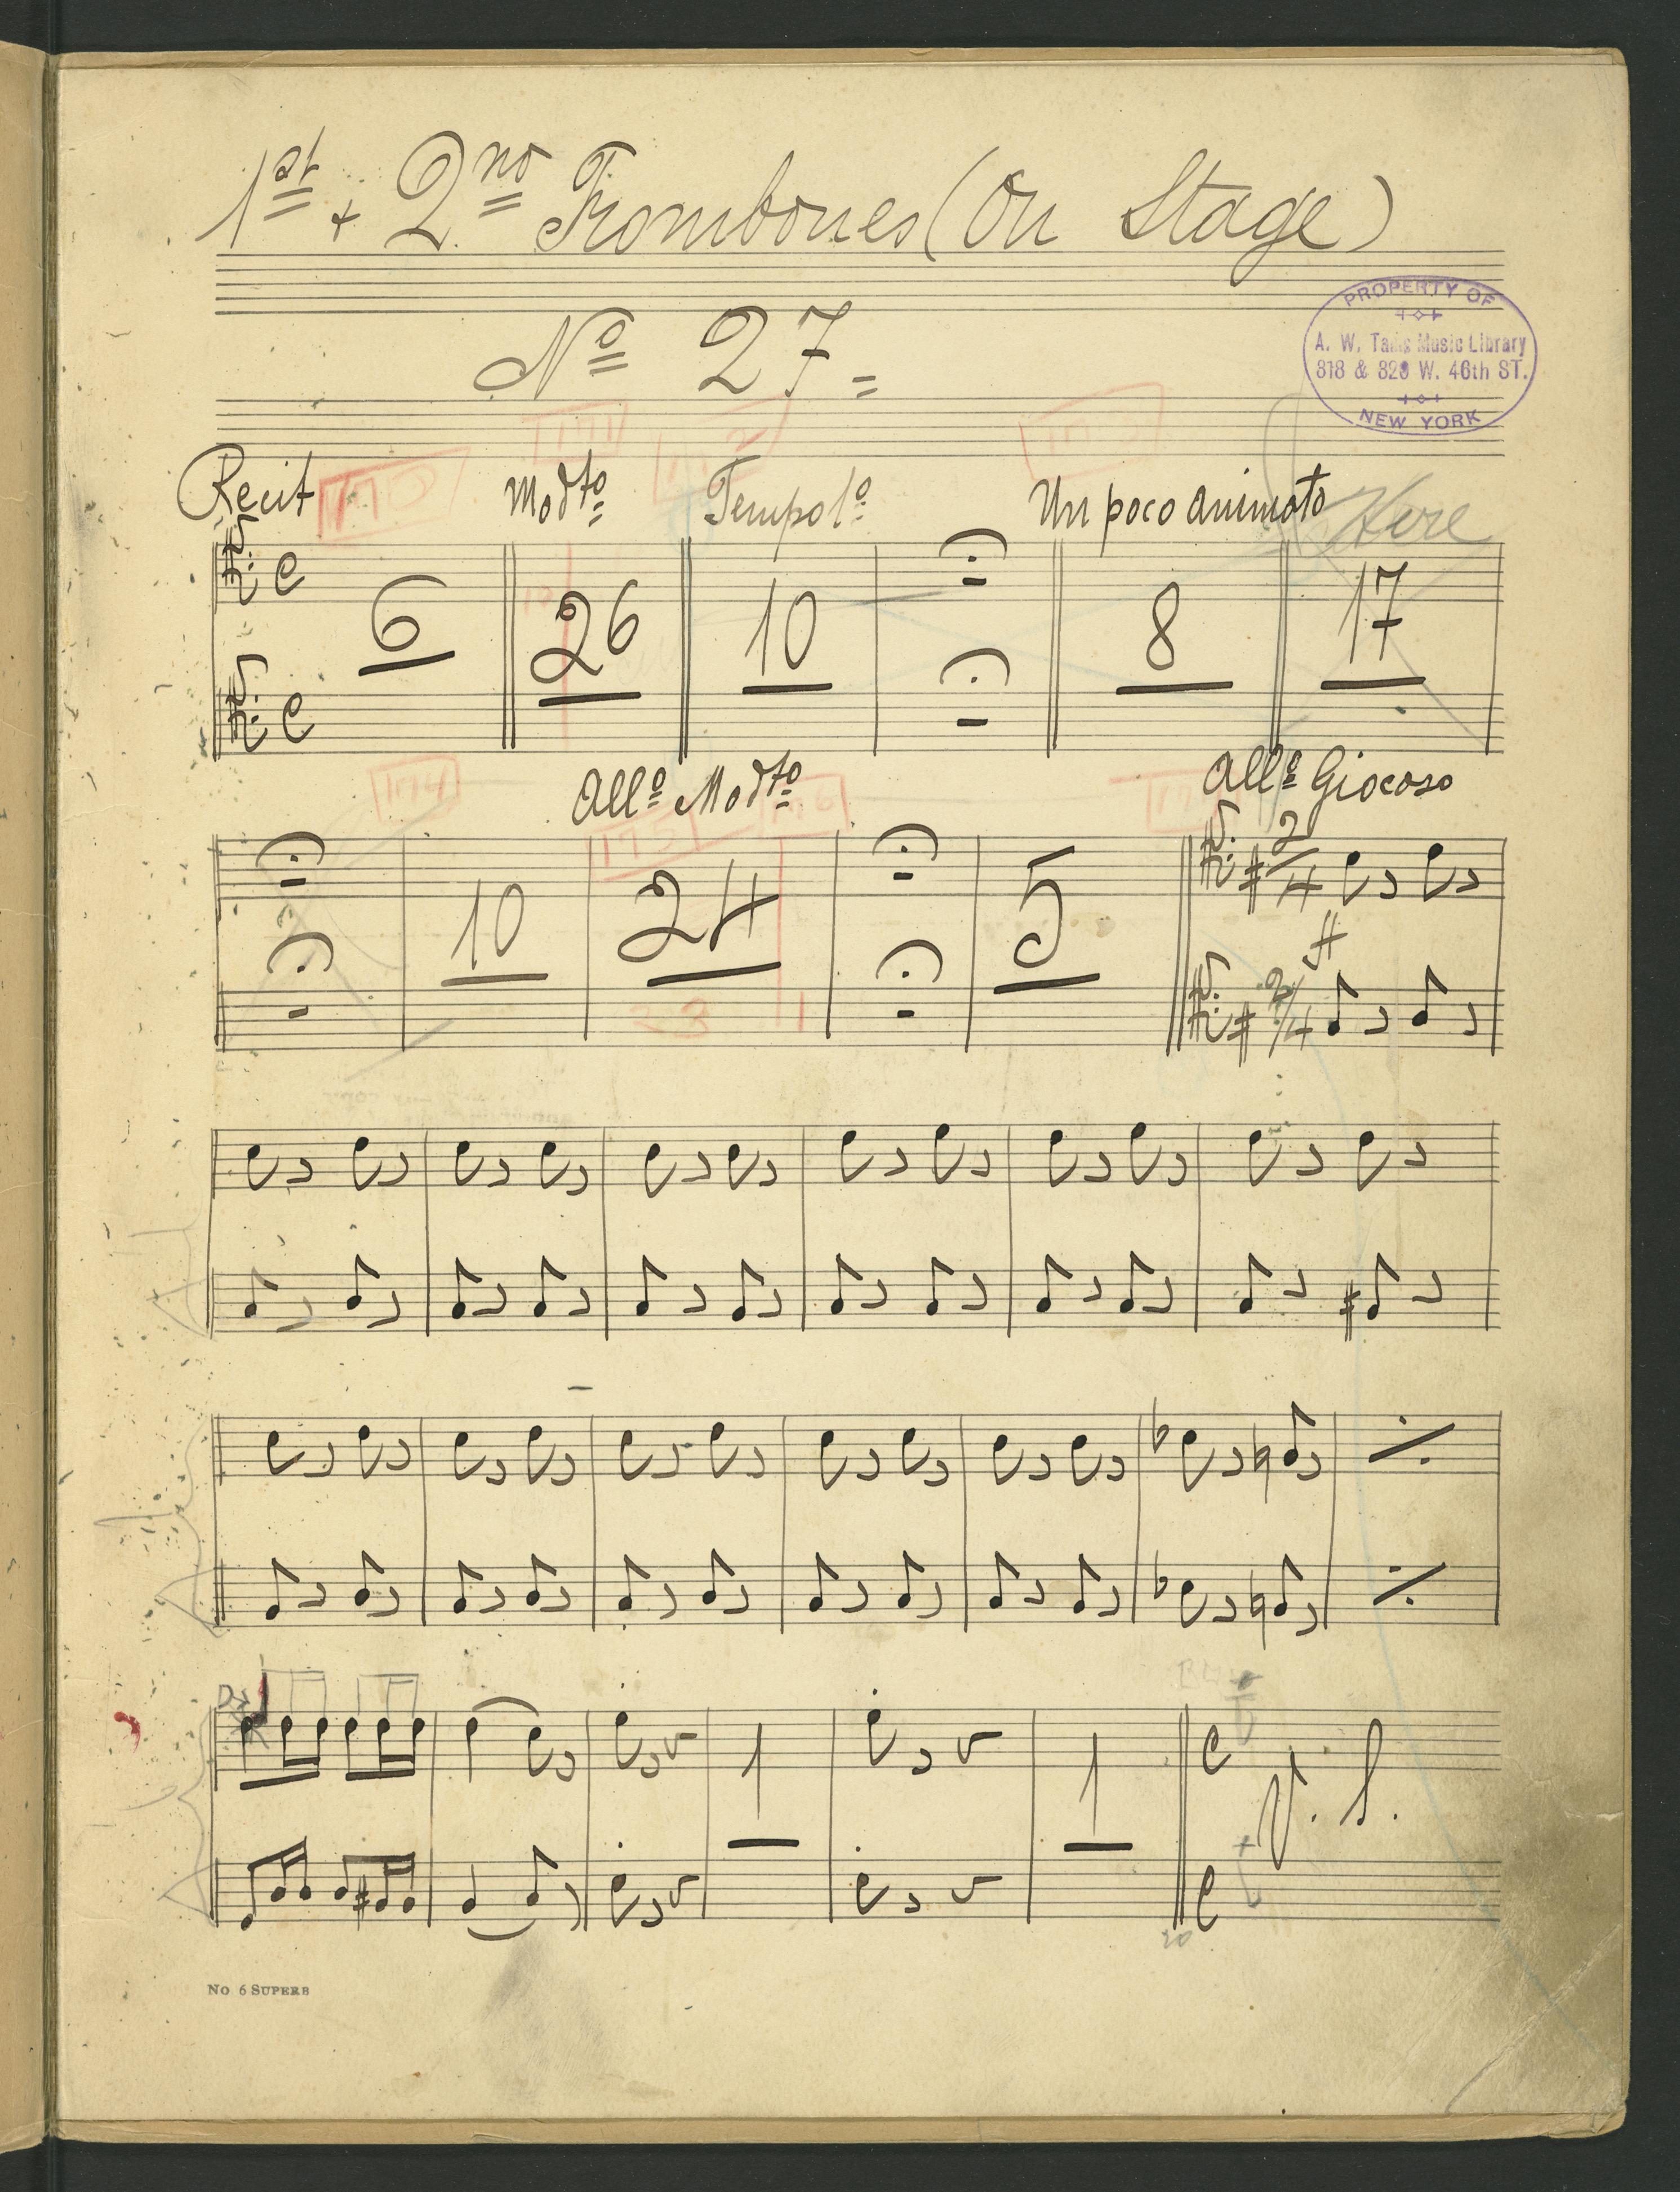 1st + 2nd Trombones (On Stage)
No 27
PROPERTY OF
A. W. Tams Music Library
818 & 820 W. 46th ST.
NEW YORK
170 171 172
Recit Modto Tempo 1o Un poco animato Here
6 26 10 8 17
174
Allo Modto Allo Giocoso
175
10 24 5 2/4
ff
2/4
23 1
1 1 V. S.
20
No 6 SUPERB